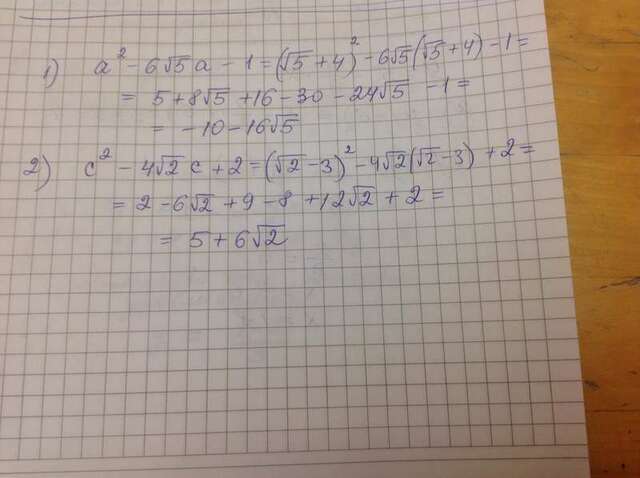 1) a² - 6√5 a - 1 = (√5 + 4)² - 6√5(√5 + 4) - 1 =
= 5 + 8√5 + 16 - 30 - 24√5 - 1 =
= - 10 - 16√5
2) c² - 4√2 c + 2 = (√2 - 3)² - 4√2(√2 - 3) + 2 =
= 2 - 6√2 + 9 - 8 + 12√2 + 2 =
= 5 + 6√2